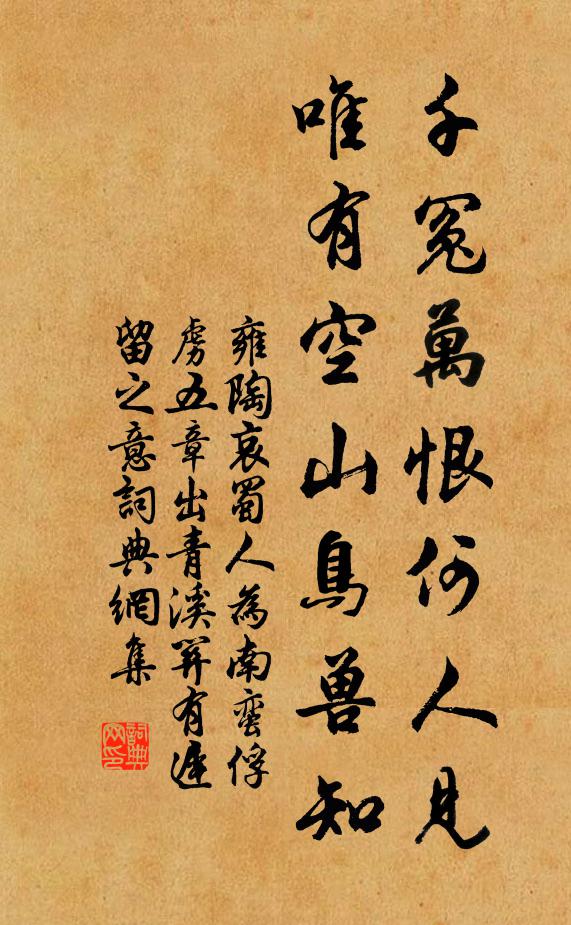 千冤萬恨何人見
唯有空山鳥兽知
雍陶哀蜀人為南蠻俘
虜五章出青溪關有遲
留之意詞典網集
詞典
网印